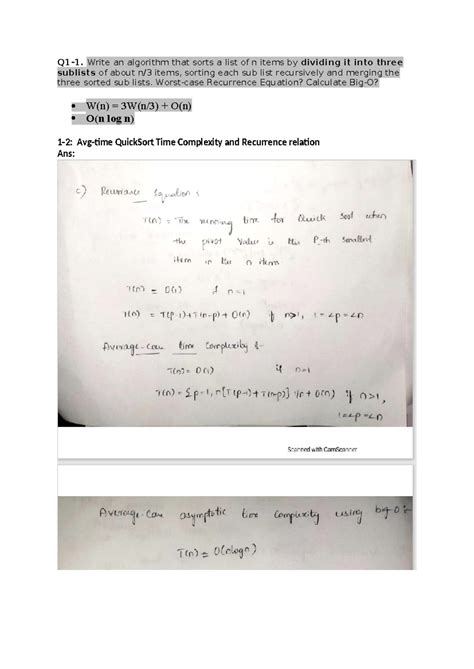 Q1-1. Write an algorithm that sorts a list of n items by dividing it into three
sublists of about n/3 items, sorting each sub list recursively and merging the
three sorted sub lists. Worst-case Recurrence Equation? Calculate Big-O?
• W(n) = 3W(n/3) + O(n)
• O(n log n)
1-2: Avg-time QuickSort Time Complexity and Recurrence relation
Ans:
c) Recurrence Equation :
T(n) = The running time for Quick Sort when
the pivot Value is the P-th Smallest
item in the n item
T(n) = O(1) if n=1
T(n) = T(p-1)+T(n-p)+O(n) if n>1, 1=<p=<n
Average-case time Complexity :-
T(n)= O(1) if n=1
T(n)= Σp-1,n[T(p-1)+T(n-p)] 1/n + O(n) if n>1,
1=<p=<n
Scanned with CamScanner
Average-Case asymptotic time Complexity using big-O :-
T(n) = O(nlogn)